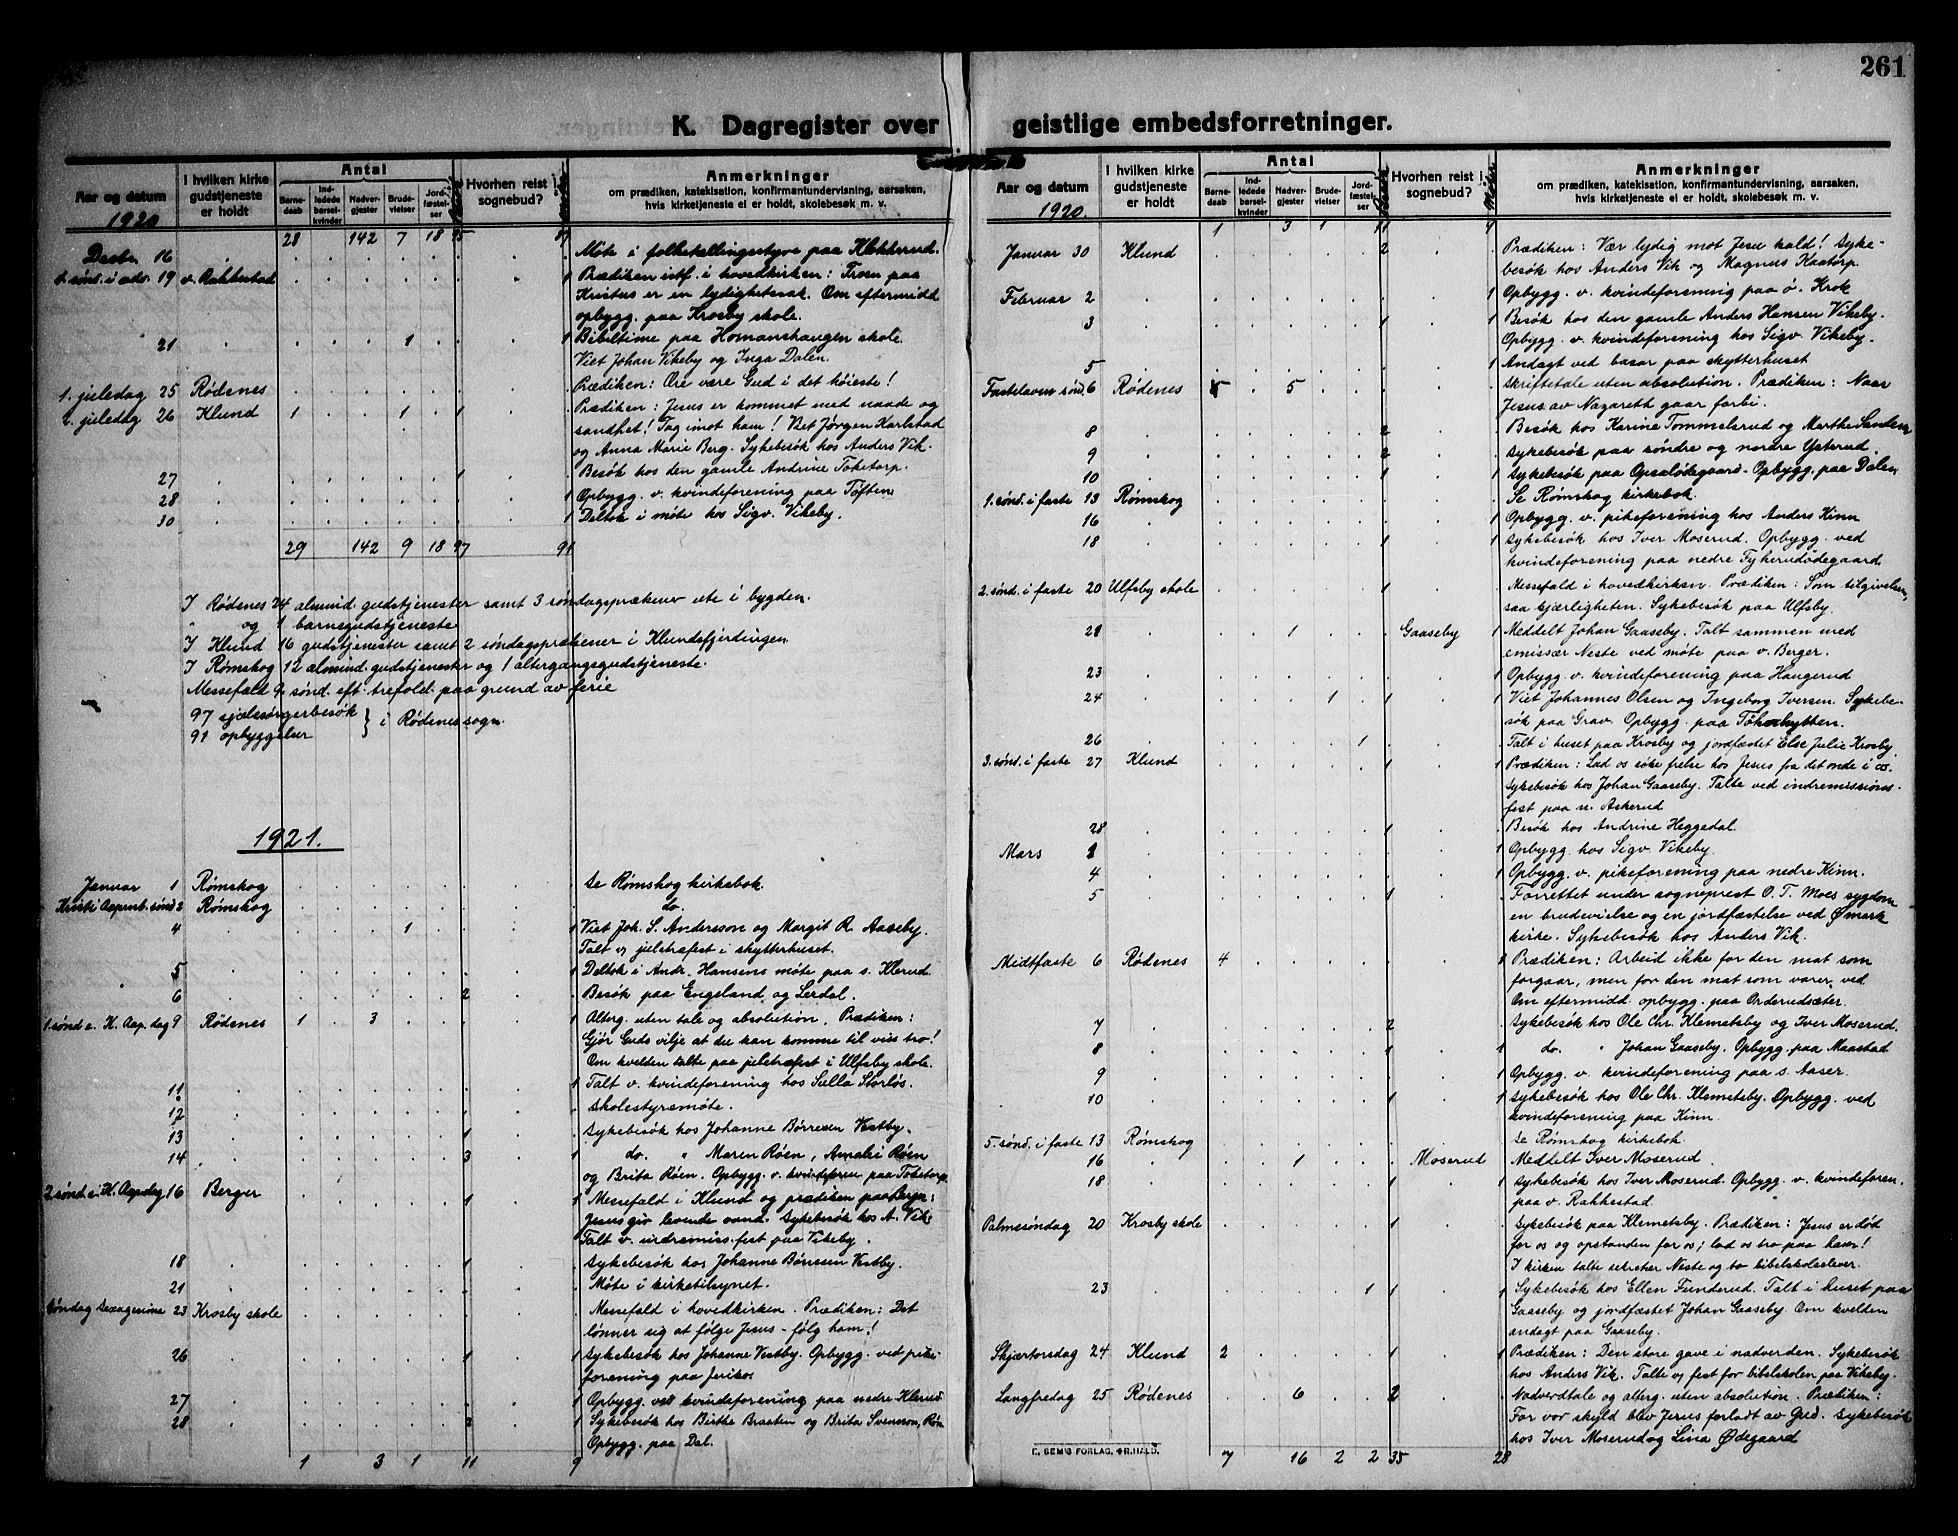 261
K. Dagregister over geistlige embedsforretninger.
Aar og datum
1920
I hvilken kirke gudstjeneste er holdt
Antal
Barne-daab
Ind-ledede barsel-kvinder
Nadver-gjester
Brude-vielser
Jord-fæstel-ser
Hvorhen reist i sognebud?
Anmerkninger
om prædiken, katekisation, konfirmantundervisning, aarsaken,
hvis kirketjeneste ei er holdt, skolebesøk m. v.
28 142 7 18 95 87
Decbr. 16 Møte i folketellingsstyre paa Klokkerud.
4. sønd. i adv. 19 v. Rakkestad 1 Prædiken istf. i hovedkirken: Troen paa
Kristus er en lydighetssak. Om eftermidd
opbygg. paa Krosby skole.
21 1 1 Bibeltime paa Homanshaugen skole.
Viet Johan Vikeby og Inga Dalen.
1. juledag 25 Rødenes Prædiken: Ære være Gud i det høieste!
2. juledag 26 Klund 1 1 1 Prædiken: Jesus er kommet med naade og
sandhet! Tag imot ham! Viet Jørgen Karlstad
og Anna Marie Berg. Sykebesøk hos Anders Vik.
27 1 Besøk hos den gamle Andrine Toketorp.
28 1 Opbygg. v. kvindeforening paa Tøften
30 1 Deltok i møte hos Sigv. Vikeby.
29 142 9 18 97 91
I Rødenes 24 almind. gudstjenester samt 3 søndagsprækener ute i bygden.
" og 1 barnegudstjeneste
I Klund 16 gudstjenester samt 2 søndagsprækener i Klundsfjerdingen
I Rømskog 12 almind. gudstjenester og 1 altergangsgudstjeneste.
Messefald 9. sønd. eft. trefold. paa grund av ferie
97 sjælesørgerbesøk } i Rødenes sogn.
91 opbyggelser
1921.
Januar 1 Rømskog Se Rømskog kirkebok.
Kristi Aapenb. sønd 2 Rømskog do.
4 1 1 Viet Joh. S. Andersson og Margit R. Aaseby.
Talt v. juletræfest i skytterhuset.
5 1 Deltok i Andr. Hansens møte paa s. Klerud.
6 2 Besøk paa Engeland og Lerdal.
1. sønd e. H. Aap. dag 9 Rødenes 1 3 1 Alterg. uten tale og absolution. Prædiken:
Gjør Guds vilje at du kan komme til viss tro!
Om kvelden talte paa juletræfest i Ulfsby skole.
11 1 Talt v. kvindeforening hos Sulla Storløs.
12 Skolestyremøte.
13 1 Sykebesøk hos Johanne Børresen Vestby.
14 3 1 do. " Maren Røen, Amalie Røen
og Brita Røen. Opbygg. v. kvindeforen. paa Toketorp
2. sønd. e. H. Aap. dag 16 Berger 1 1 Messefald i Klund og prædiken paa Berger:
Jesus gir levende vand. Sykebesøk hos A. Vik.
Talt v. indremiss. fest paa Vikeby.
18 1 Sykebesøk hos Johanne Børresen Vestby.
21 Møte i kirketilsynet.
Søndag sexagesima 23 Krosby skole Messefald i hovedkirken. Prædiken: Det
lønner sig at følge Jesus - følg ham!
26 1 1 Sykebesøk hos Johanne Vestby. Opbygg. ved pike-
forening paa Jeriko.
27 1 Opbygg. ved kvindeforening paa nedre Klerud.
28 2 1 Sykebesøk hos Birthe Braaten og Brita Svensson, Røn
Opbygg. paa Dal.
1 3 1 11 9
Aar og datum
1920.
I hvilken kirke gudstjeneste er holdt
Antal
Barne-daab
Ind-ledede barsel-kvinder
Nadver-gjester
Brude-vielser
Jord-fæstel-ser
Hvorhen reist i sognebud?
Anmerkninger
om prædiken, katekisation, konfirmantundervisning, aarsaken,
hvis kirketjeneste ei er holdt, skolebesøk m. v.
1 3 1 11 9
Januar 30 Klund 2 Prædiken: Vær lydig mot Jesu kald! Syke-
besøk hos Anders Vik og Magnus Kaatorp.
Februar 2 1 Opbygg. v. kvindeforening paa ø. Krok
3 1 1 Besøk hos den gamle Anders Hansen Vikeby.
Opbygg. v. kvindeforening hos Sigv. Vikeby.
5 1 Andagt ved basar paa skytterhuset
Fastelavens sønd. 6 Rødenes 5 5 Skriftetale uten absolution. Prædiken: Naar
Jesus av Nazareth gaar forbi.
8 2 Besøk hos Karine Tommelerud og Marthe Sanden
9 2 Sykebesøk paa søndre og nordre Ysterud.
10 1 1 Sykebesøk paa Opsalødegaard. Opbygg. paa Dalen
1. sønd. i faste 13 Rømskog Se Rømskog kirkebok.
16 1 Opbygg. v. pikeforening hos Anders Kinn
18 1 1 Sykebesøk hos Iver Moserud. Opbygg. ved
kvindeforening paa nedre Fykerudødegaard
2. sønd. i faste 20 Ulfsby skole 1 Messefald i hovedkirken. Prædiken: Som tilgivelsen,
saa kjærligheten. Sykebesøk paa Ulfsby.
21 1 Gaaseby 1 Meddelt Johan Gaaseby. Talt sammen med
emissær Neste ved møte paa v. Berger.
23 1 Opbygg. v. kvindeforening paa Haugerud
24 1 1 1 Viet Johannes Olsen og Ingeborg Iversen. Sykebe-
søk paa Grav. Opbygg. paa Tokerhytten.
26 1 Talt i huset paa Krosby og jordfæstet Else Julie Krosby.
3. sønd. i faste 27 Klund 1 1 Prædiken: Lad os søke frelse hos Jesus fra det onde i os.
Sykebesøk hos Johan Gaaseby. Talte ved indremissions-
fest paa n. Askerud
28 1 Besøk hos Andrine Heggedal.
Mars 1 1 Opbygg. hos Sigv. Vikeby.
4 1 Opbygg. v. pikeforening paa nedre Kinn.
5 1 Forrettet under sogneprest O. T. Moes sygdom
en brudevielse og en jordfæstelse ved Ømark
kirke. Sykebesøk hos Anders Vik.
Midtfaste 6 Rødenes 4 1 Prædiken: Arbeid ikke for den mat som
forgaar, men for den mat som varer ved
Om eftermidd. opbygg. paa Orderudsæter.
7 2 Sykebesøk hos Ole Chr. Klemetsby og Iver Moserud.
8 1 1 do. " Johan Gaaseby. Opbygg. paa Maastad
9 1 Opbygg. v. kvindeforening paa s. Aaser.
10 1 1 Sykebesøk hos Ole Chr. Klemetsby. Opbygg. ved
kvindeforening paa Kinn.
5. sønd. i faste 13 Rømskog Se Rømskog kirkebok.
16 1 Moserud Meddelt Iver Moserud.
18 1 1 Sykebesøk hos Iver Moserud. Opbygg. v. kvindeforen.
paa v. Rakkestad
Palmesøndag 20 Krosby skole 1 Sykebesøk paa Klemetsby. Prædiken: Jesus er død
for os og opstanden for os; lad os tro paa ham!
I kirken talte sekretær Neste og to bibelskoleelever.
23 1 1 1 Sykebesøk hos Ellen Funderud. Talt i huset paa
Gaaseby og jordfæstet Johan Gaaseby. Om kvelden
andagt paa Gaaseby.
Skjærtorsdag 24 Klund 2 1 1 Prædiken: Den store gave i nadverden. Sykebesøk
hos Anders Vik. Talte v. fest for bibelskolen paa Vikeby.
Langfredag 25 Rødenes 6 2 Nadverdtale og alterg. uten absolution. Prædiken:
For vor skyld blev Jesus forladt av Gud. Sykebesøk
hos Iver Moserud og Lina Ødegaard
E. SEM'S FORLAG, FR.HALD.
7 16 2 2 35 28